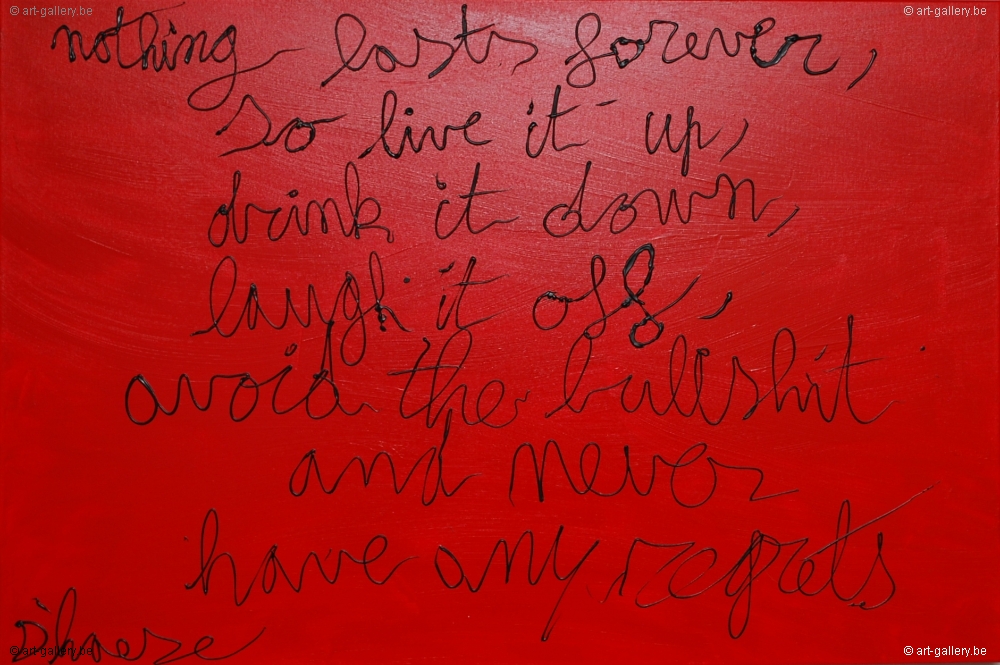 © art-gallery.be © art-gallery.be
nothing lasts forever,
so live it up,
drink it down,
laugh it off,
avoid the bullshit
and never
have any regrets
© art-gallery.be © art-gallery.be